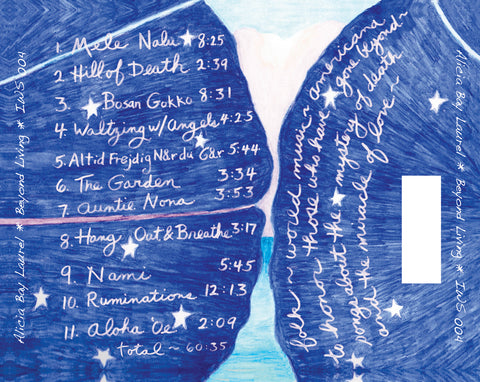 Alicia Bay Laurel * Beyond Living * IWS 004
1. Mele Nalu 8:25
2 Hill of Death 2:39
3. Bosan Gokko 8:31
4. Waltzing w/Angels 4:25
5. Altid Frejdig Når du Går 5:44
6. The Garden 3:34
7. Auntie Nona 3:53
8. Hang Out & Breathe 3:17
9. Nami 5:45
10. Ruminations 12:13
11. Aloha 'Oe 2:09
total ~ 60:35
folk ~ world music ~ americana
to honor those who have gone beyond ~
songs about the mystery of death
and the miracle of love ~
Alicia Bay Laurel * Beyond Living * IWS 004